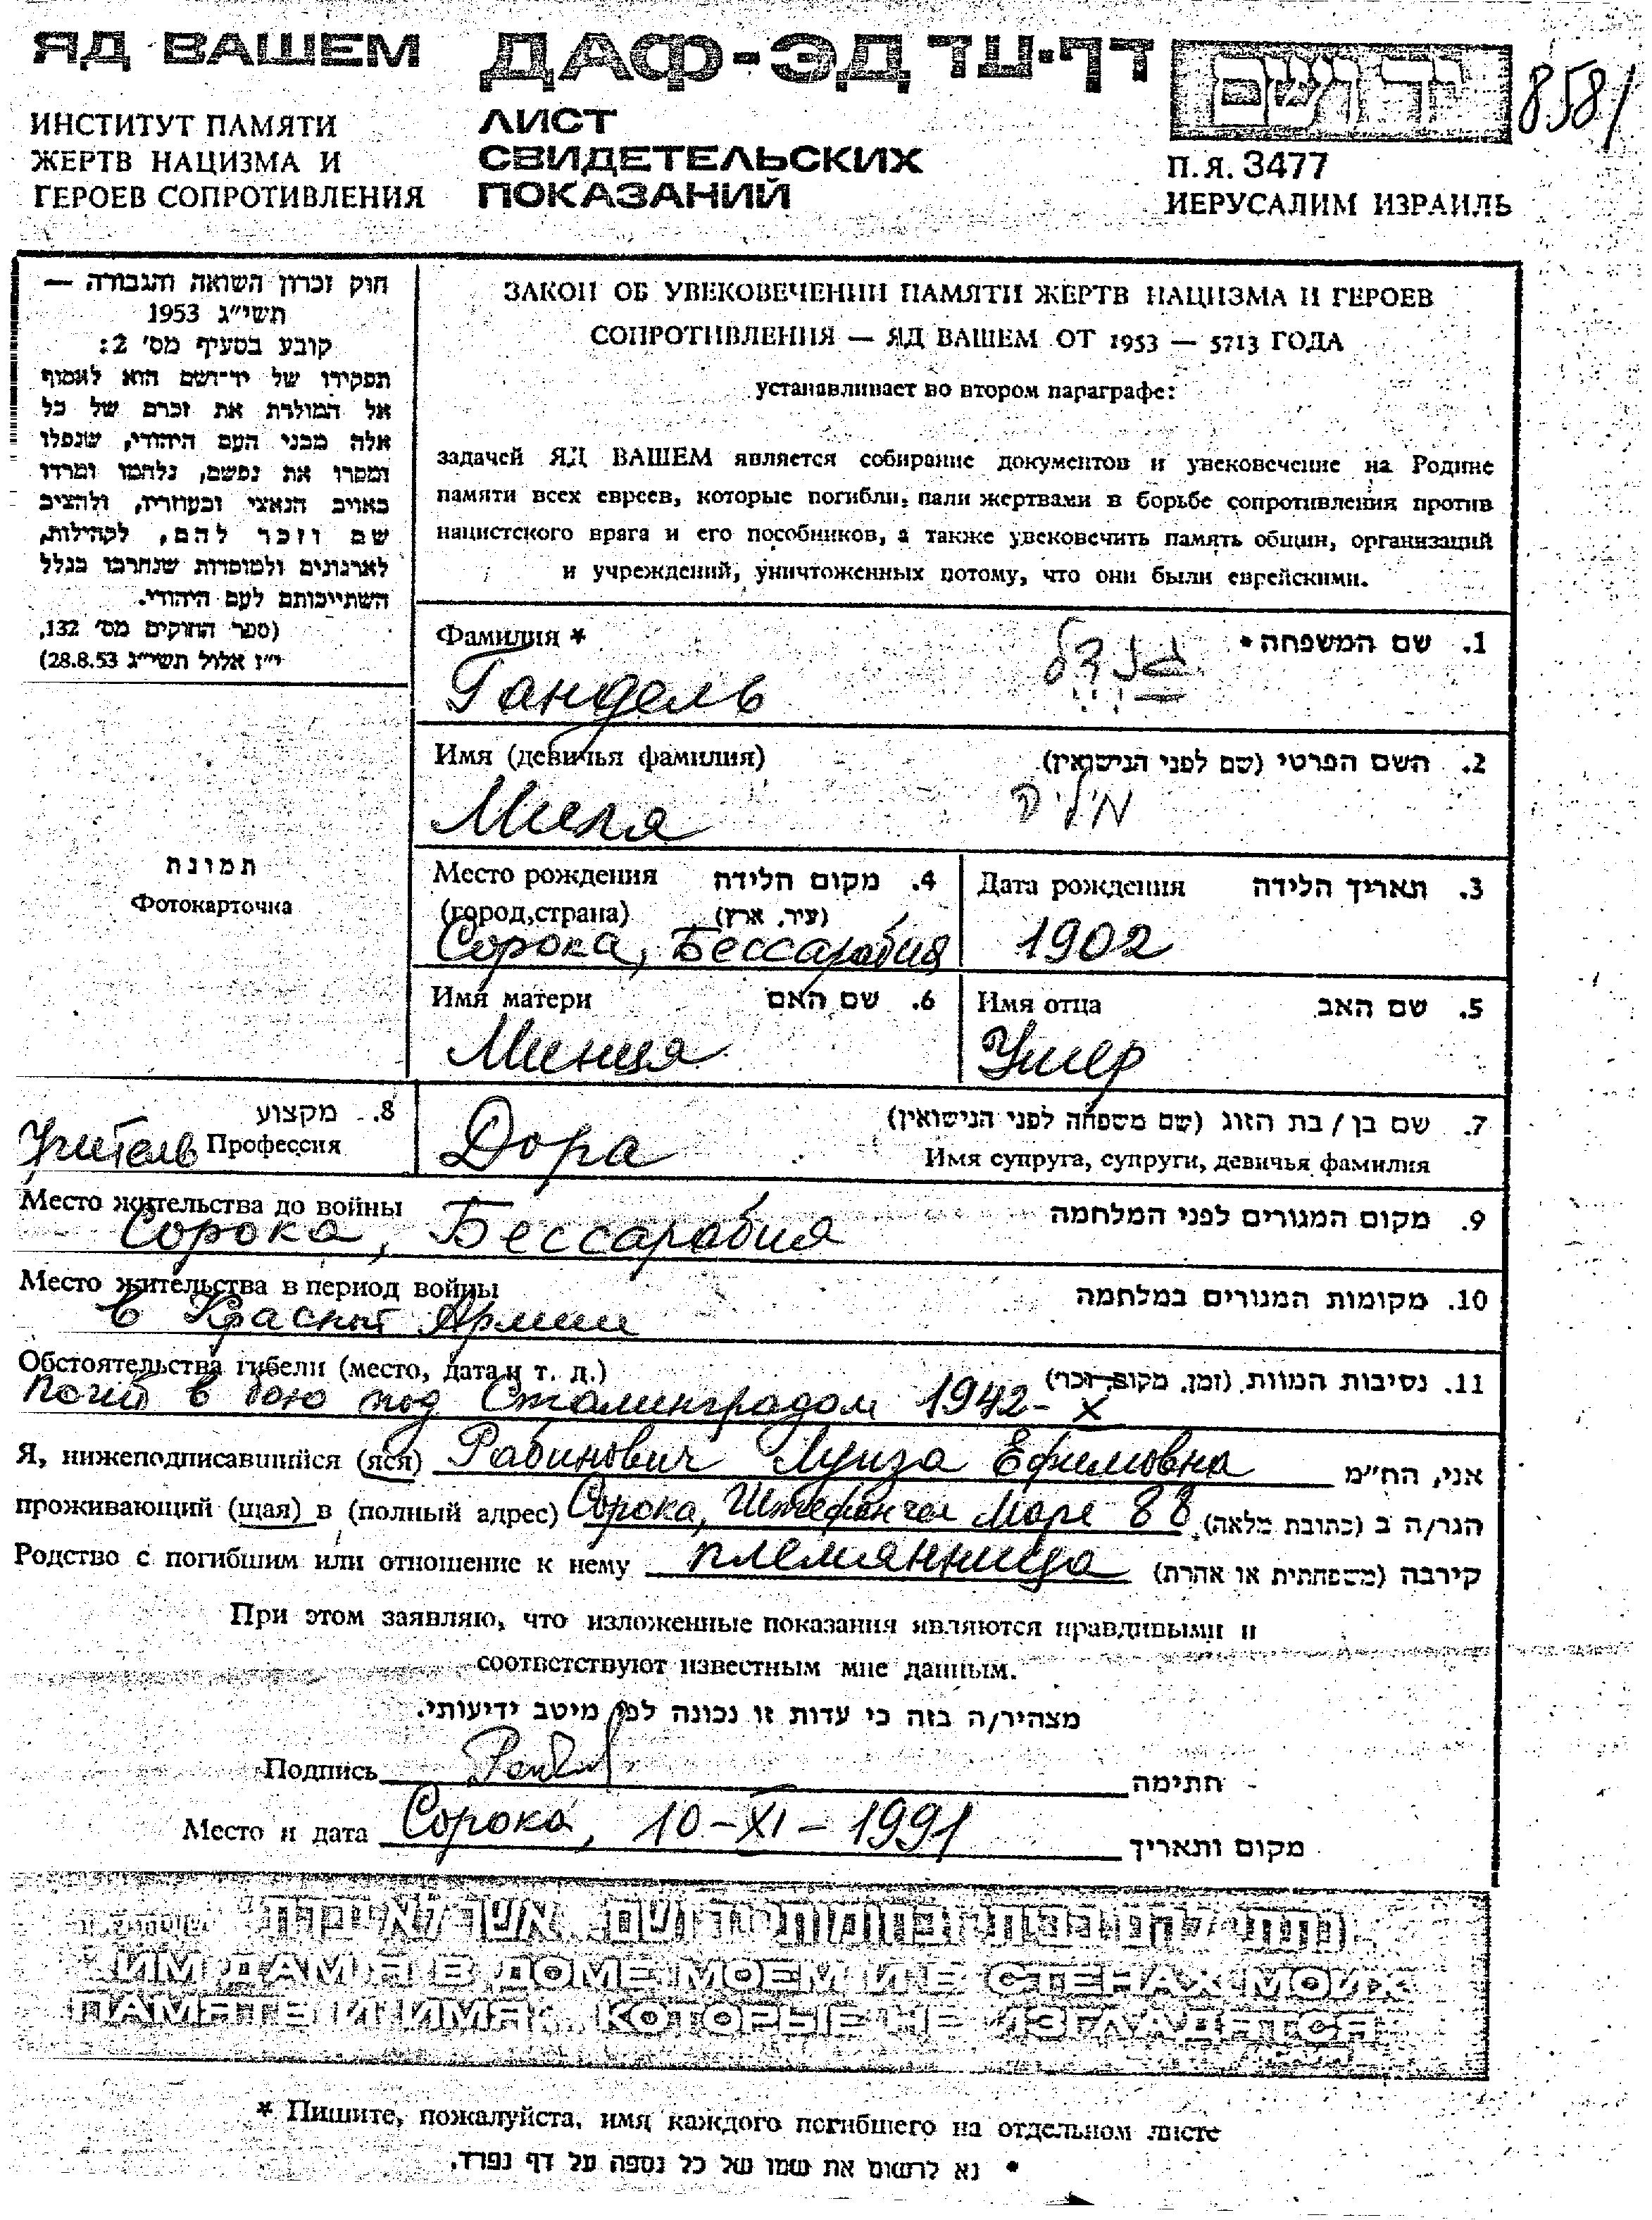 ЯД ВАШЕМ
ДАФ-ЭД דף-עד
יד ושם
858/
ИНСТИТУТ ПАМЯТИ
ЖЕРТВ НАЦИЗМА И
ГЕРОЕВ СОПРОТИВЛЕНИЯ
ЛИСТ
СВИДЕТЕЛЬСКИХ
ПОКАЗАНИЙ
П.Я. 3477
ИЕРУСАЛИМ ИЗРАИЛЬ
חוק זכרון השואה והגבורה —
תשי״ג 1953
קובע בסעיף מס׳ 2:
תפקידו של יד־ושם הוא לאסוף
אל המולדת את זכרם של כל
אלה מבני העם היהודי, שנפלו
ומסרו את נפשם, נלחמו ומרדו
באויב הנאצי ובעוזריו, ולהציב
שם וזכר להם, לקהילות,
לארגונים ולמוסדות שנחרבו בגלל
השתייכותם לעם היהודי.
(ספר החוקים מס׳ 132,
י״ז אלול תשי״ג 28.8.53)
ЗАКОН ОБ УВЕКОВЕЧЕНИИ ПАМЯТИ ЖЕРТВ НАЦИЗМА И ГЕРОЕВ
СОПРОТИВЛЕНИЯ — ЯД ВАШЕМ ОТ 1953 — 5713 ГОДА
устанавливает во втором параграфе:
задачей ЯД ВАШЕМ является собирание документов и увековечение на Родине
памяти всех евреев, которые погибли, пали жертвами в борьбе сопротивления против
нацистского врага и его пособников, а также увековечить память общин, организаций
и учреждений, уничтоженных потому, что они были еврейскими.
Фамилия * 1. שם המשפחה *
Гандель גנדל
Имя (девичья фамилия) 2. השם הפרטי (שם לפני הנישואין)
Миля מיליה
תמונת
Фотокарточка
Место рождения 4. מקום הלידה
(город,страна) (עיר, ארץ)
Сорока, Бессарабия
Дата рождения 3. תאריך הלידה
1902
Имя матери 6. שם האם
Минця
Имя отца 5. שם האב
Ушер
8. מקצוע
Учитель Профессия
7. שם בן / בת הזוג (שם משפחה לפני הנישואין)
Дора Имя супруга, супруги, девичья фамилия
Место жительства до войны 9. מקום המגורים לפני המלחמה
Сорока, Бессарабия
Место жительства в период войны 10. מקומות המגורים במלחמה
в Красной Армии
Обстоятельства гибели (место, дата и т. д.) 11. נסיבות המוות (זמן, מקום, וכד׳)
погиб в бою под Сталинградом 1942-X
Я, нижеподписавшийся (яся) Рабинович Луиза Ефимовна אני, הח״מ
проживающий (щая) в (полный адрес) Сорока, Штефан чел Маре 88 הגר/ה ב (כתובת מלאה)
Родство с погибшим или отношение к нему племянница קירבה (משפחתית או אחרת)
При этом заявляю, что изложенные показания являются правдивыми и
соответствуют известным мне данным.
מצהיר/ה בזה כי עדות זו נכונה לפי מיטב ידיעותי.
Подпись חתימה
Место и дата Сорока, 10-XI-1991 מקום ותאריך
ונתתי להם בביתי ובחומותי יד ושם... אשר לא יכרת
ИМ ДАМ Я В ДОМЕ МОЕМ И В СТЕНАХ МОИХ
ПАМЯТЬ И ИМЯ... КОТОРЫЕ НЕ ИЗГЛАДЯТСЯ
* Пишите, пожалуйста, имя каждого погибшего на отдельном листе
• נא לרשום את שמו של כל נספה על דף נפרד.